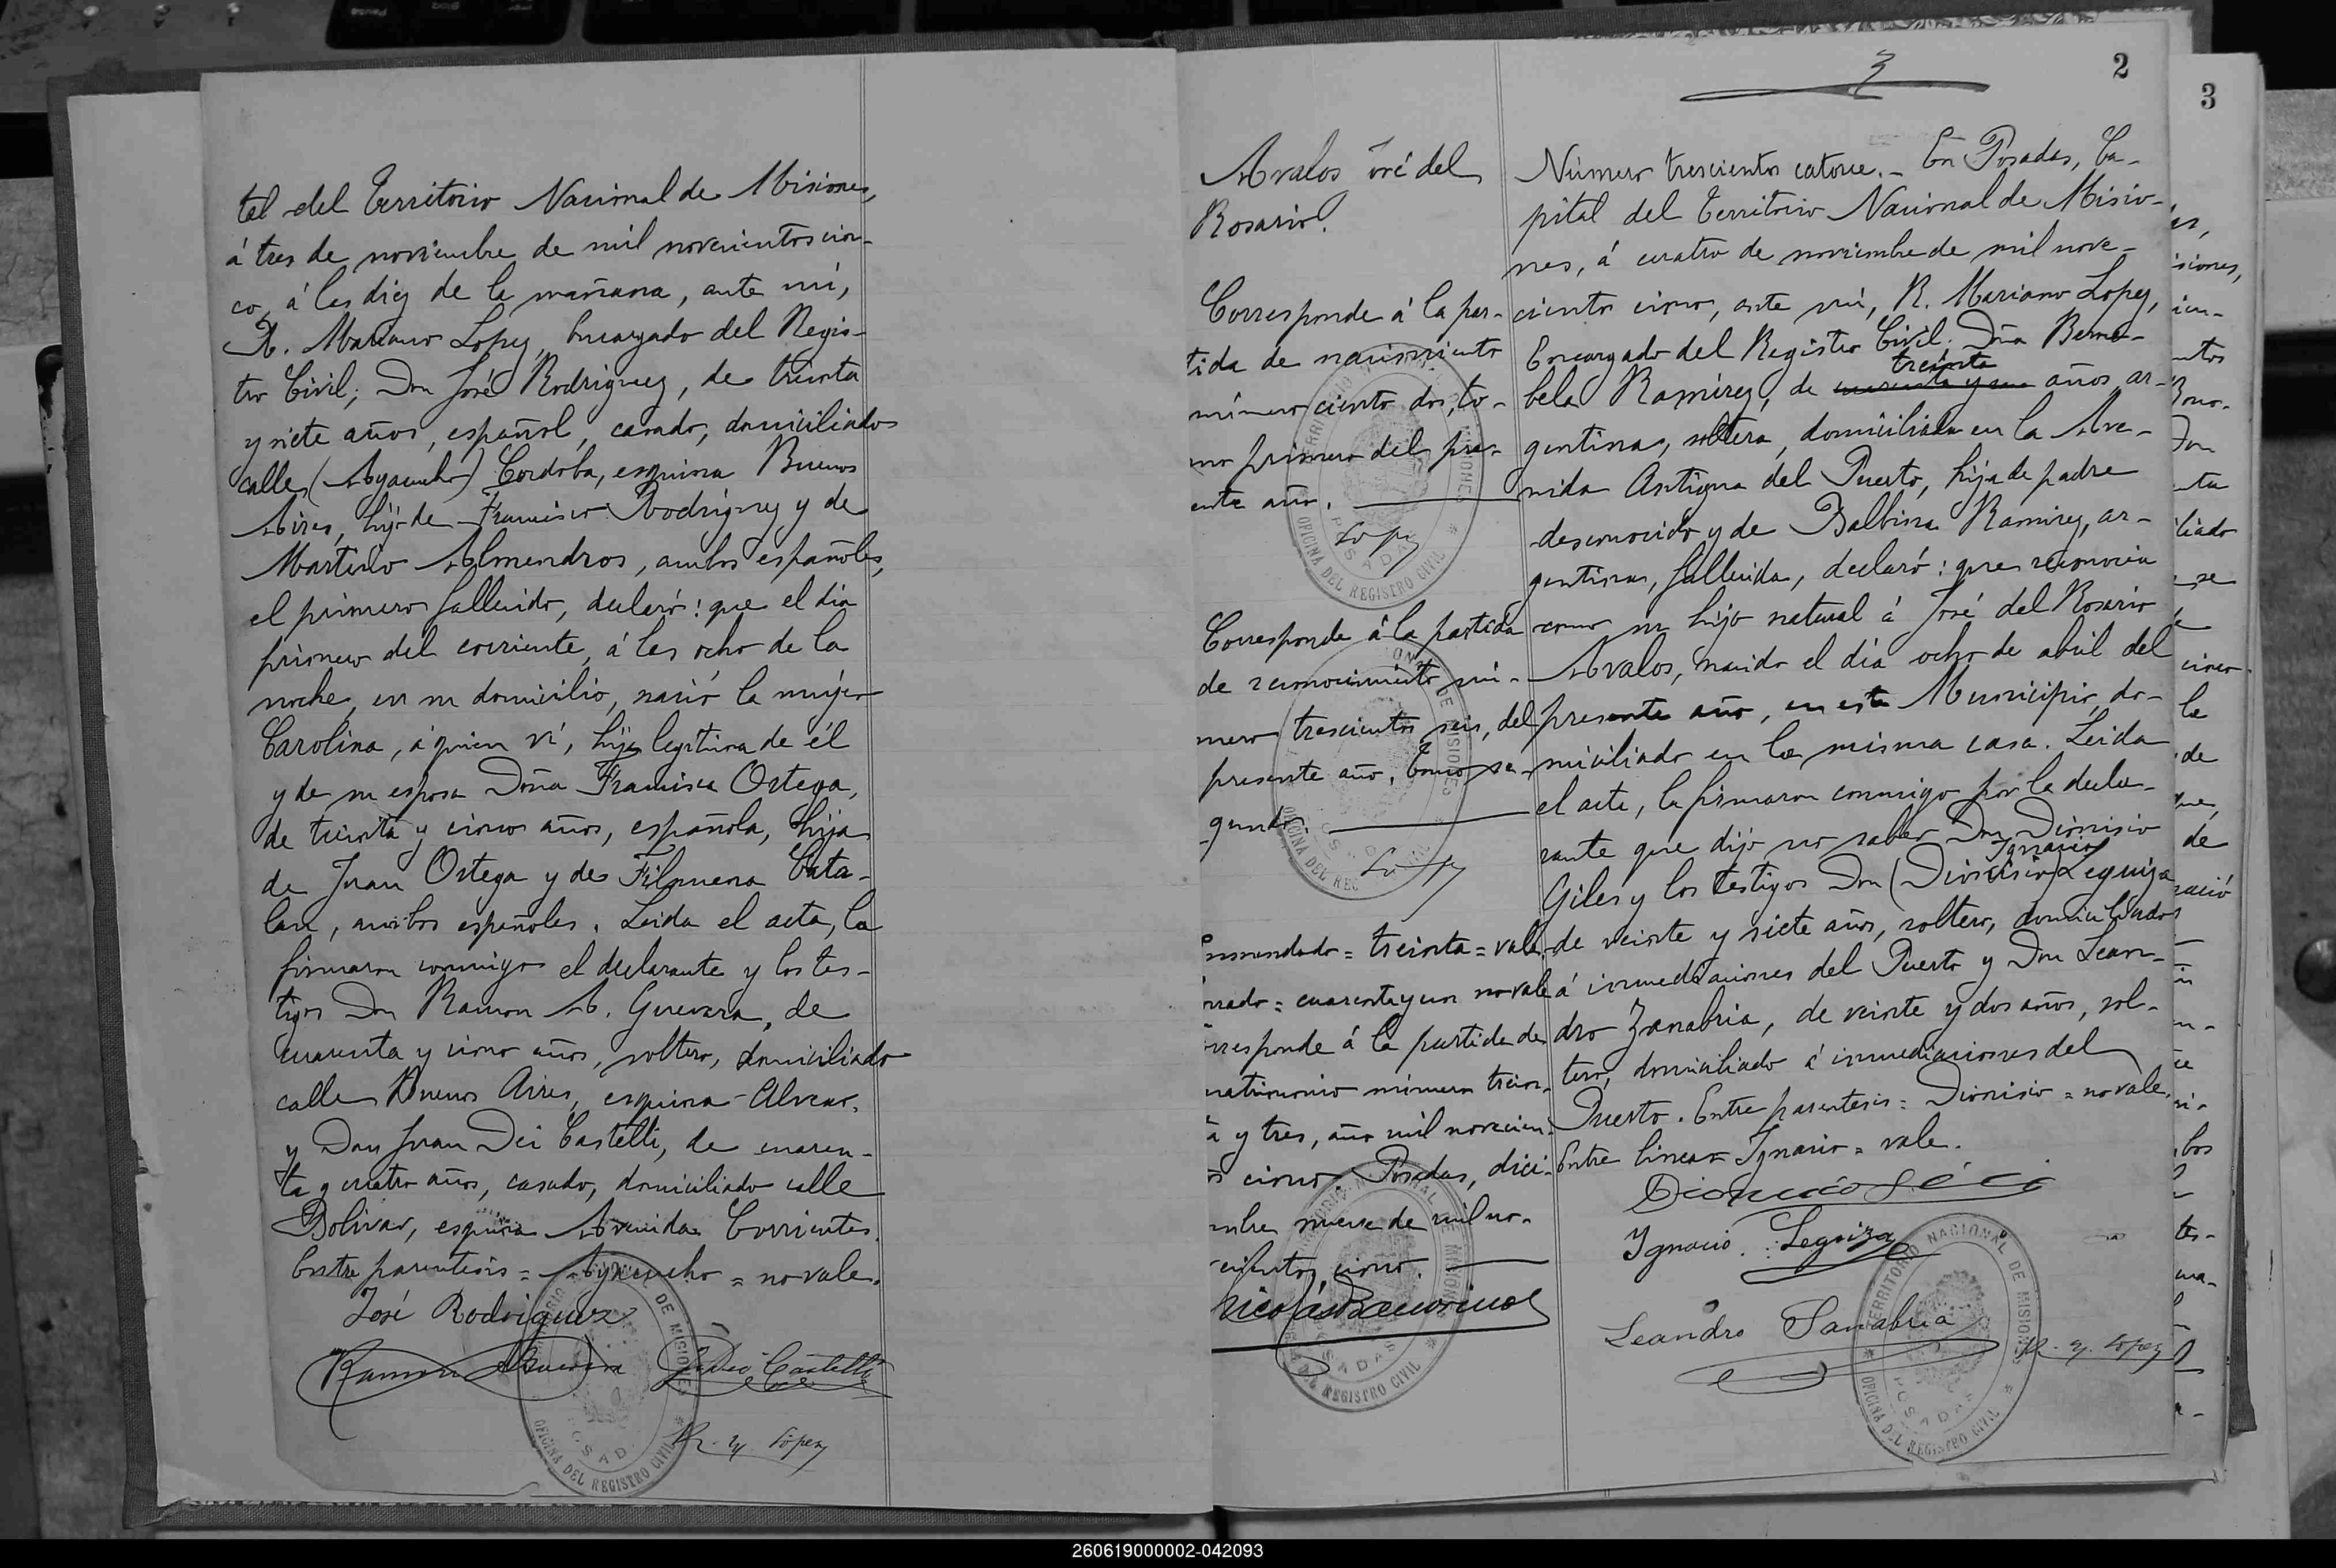 tal del Territorio Nacional de Misiones,
á tres de noviembre de mil novecientos cin-
co, á las diez de la mañana, ante mí,
R. Mariano Lopez, Encargado del Regis-
tro Civil; Don José Rodriguez, de treinta
y siete años, español, casado, domiciliado
calle (Ayacucho) Cordoba, esquina Buenos
Aires, hijo de Francisco Rodriguez y de
Almendros, ambos españoles,
el primero fallecido, declaró: que el dia
primero del corriente, á las ocho de la
noche, en su domicilio, nació la mujer
Carolina, á quien ví, hija legítima de él
y de su esposa Doña Francisca Ortega,
de treinta y cinco años, española, hija
de Juan Ortega y de Filomena Cata-
lan, ambos españoles. Leida el acta, la
firmaron conmigo el declarante y los tes-
tigos Don Ramon A. Guevara, de
cuarenta y cinco años, soltero, domiciliado
calle Buenos Aires, esquina Alvear,
y Don Juan Dei Castelli, de cuaren-
ta y cuatro años, casado, domiciliado calle
Bolivar, esquina Avenida Corrientes.
Entre parentesis = Ayacucho = no vale.
José Rodriguez
Ramon Guevara Castelli
R. M. Lopez
TERRITORIO NACIONAL DE MISIONES
POSADAS
OFICINA DEL REGISTRO CIVIL
3
2
3
Avalos José del
Rosario.
Corresponde á la par-
tida de nacimiento
número ciento dos, to-
mo primero del pre-
ente año.
Lopez
Corresponde á la partida
de reconocimiento nú-
mero trescientos seis, del
presente año, tomo se-
gundo.
Lopez
nmendado = treinta = vale
rrado = cuarenta y un no vale
rresponde á la partida de
matrimonio número trein-
ta y tres, año mil novecien-
os cinco. Posadas, dici-
mbre nueve de mil no-
vecientos cinco.
Número trescientos catorce.- En Posadas, Ca-
pital del Territorio Nacional de Misio-
nes, á cuatro de noviembre de mil nove-
cientos cinco, ante mí, R. Mariano Lopez,
Encargado del Registro Civil. Doña Berna-
treinta
bela Ramirez, de cuarenta y un años, ar-
gentina, soltera, domiciliada en la Ave-
nida Antigua del Puerto, hija de padre
desconocido y de Balbina Ramirez, ar-
gentina, fallecida, declaró: que reconocia
como su hijo natural á José del Rosario
Avalos, nacido el día ocho de abril del
presente año, en este Municipio, do-
miciliado en la misma casa. Leida
el acta, la firmaron conmigo por la decla-
rante que dijo no saber Don Dionisio
Ignacio
Giles y los testigos Don (Dionisio) Leguiza
de veinte y siete años, soltero, domiciliado
á inmediaciones del Puerto y Don Lean-
dro Zanabria, de veinte y dos años, sol-
tero, domiciliado á inmediaciones del
Puerto. Entre parentesis = Dionisio = no vale.
Entre lineas = Ignacio = vale.
Ignacio Leguiza
Leandro Sanabria
R. M. Lopez
TERRITORIO NACIONAL DE MISIONES
POSADAS
OFICINA DEL REGISTRO CIVIL
260619000002-042093